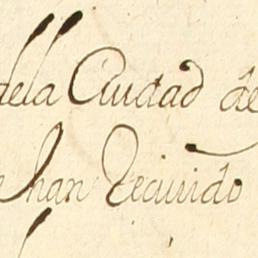 dela Ciudad de
han Recivido